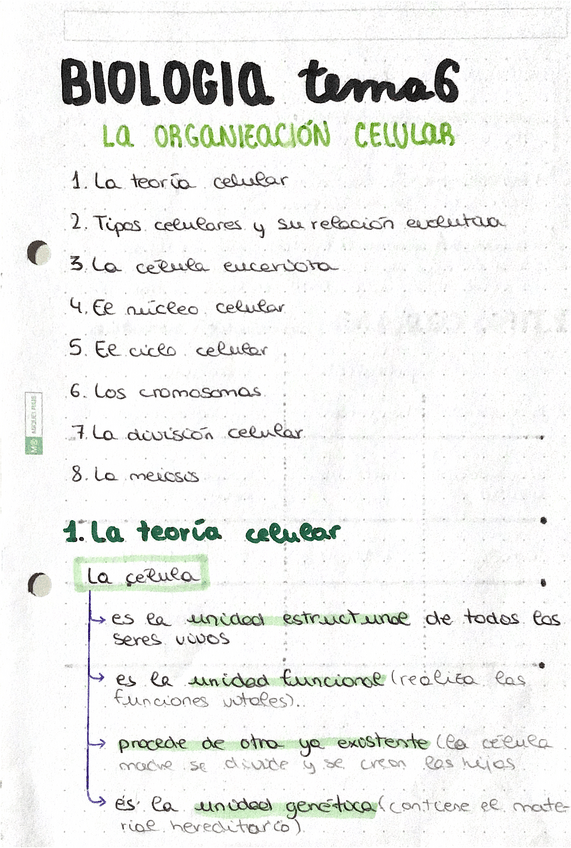 BIOLOGIA tema 6
LA ORGANIZACIÓN CELULAR
1. La teoría celular
2. Tipos celulares y su relación evolutiva
3. La célula eucariota
4. El núcleo celular
5. El ciclo celular
6. Los cromosomas
7. La división celular
8. La meiosis
1. La teoría celular
La célula
es la unidad estructural de todos los
seres vivos
es la unidad funcional (realiza las
funciones vitales).
procede de otra ya existente (la célula
madre se divide y se crean las hijas
es la unidad genética (contiene el mate-
rial hereditario).
MIQUELRIUS